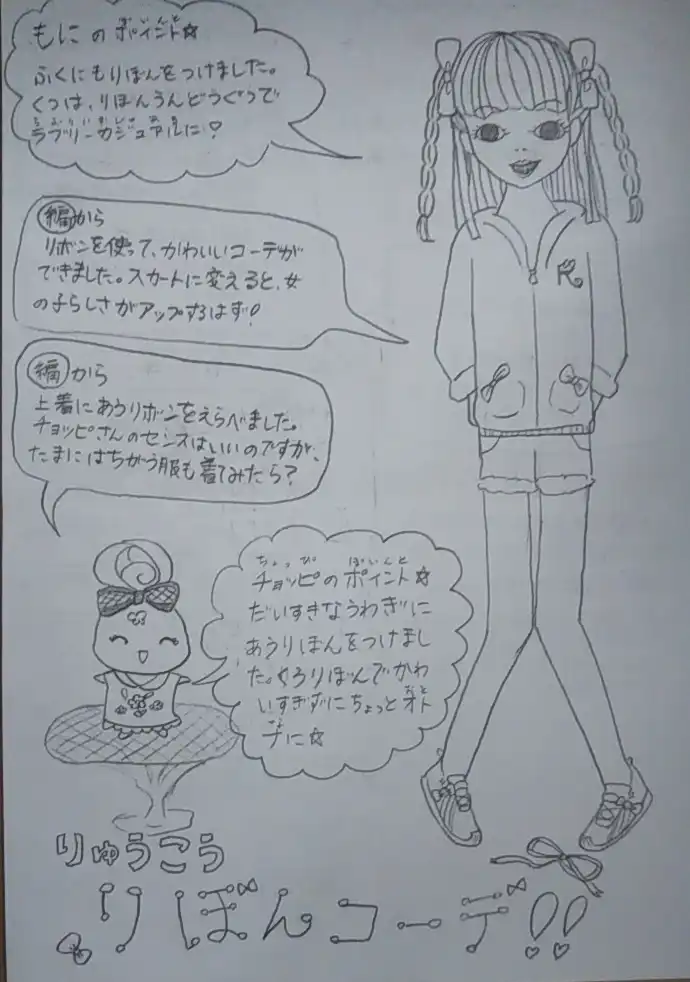 もにのポイント☆
ふくにもりぼんをつけました。
くつは、りぼんうんどうぐつで
ラブリーカジュアルに♡
編から
リボンを使って、かわいいコーデが
できました。スカートに変えると、女
の子らしさがアップするはず!
編から
上着にあうリボンをえらべました。
チョッピさんのセンスはいいのですが、
たまにはちがう服も着てみたら?
チョッピのポイント☆
だいすきなうわぎに
あうりぼんをつけまし
た。くろりぼんでかわ
いすぎずにちょっとオト
ナに☆
R
りゅうこう
りぼんコーデ!!